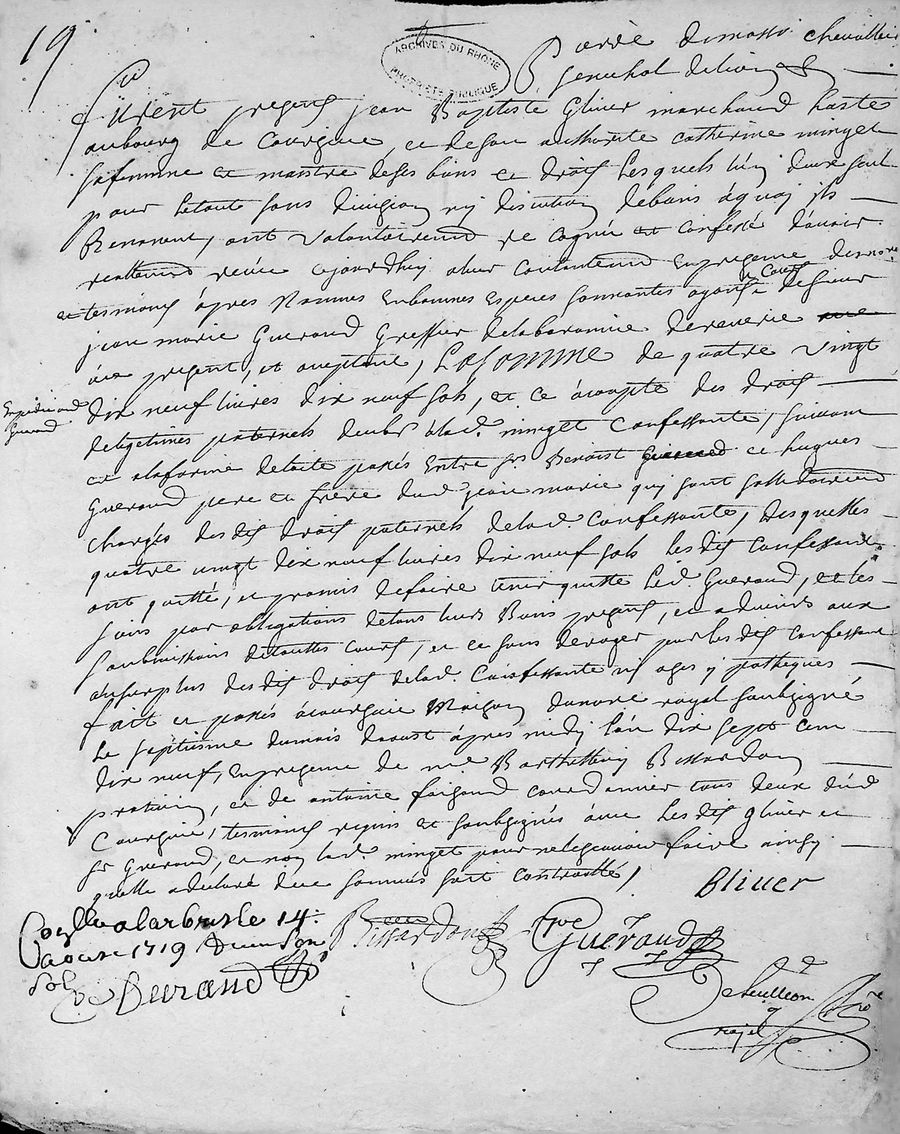 19
ARCHIVES DU RHONE
PROPRIÉTÉ PUBLIQUE
Pierre dimassi chevallier
senechal de lion &
furent presens jean Baptiste Oliver marchand hoste
aubourg de Courzieu, et de son authorité catherine minget
safemme et maistre deses biens et droits lesquels l'un deux seul
pour letoute sans division ny discution debiens aquoy ils
Renoncent, ont volontairement recognu et confessé d'avoir
reallement receu cejourdhuy aleur contantement En presence du nore
et tesmoins apres Nommes Enbonnes Especes sonnantes ayans Cours de sieur
jean marie Guerand Greffier delabaronnie de
ice present, et aceptant, LaSomme de quatre vingt
dix neuf livres dix neuf sols, et ce acompte des droits
Expedié aud
Guerand
delegitimes paternels deubs alad. minget Confessante, suivant
et alaforme delacte passés Entre sr Benoist et hugues
Guerand pere et frere dud. jean marie quy sont solidairement
chargés desdits droits paternels delad. Confessante, Desquelles
quatre vingt dix neuf livres dix neuf sols lesdits Confessants
ont quitté, et promis defaire tenir quitte led. Guerand, et les
siens par obligations detous leurs Biens presens, et advenir aux
soubmissions detouttes Cours, et ce sans deroger par lesdits Confessant
ausurplus desdits droits delad. Confessante ny ages ypotheques
fait et passés acourzieu Maison dunore royal soubsigné
Le septiesme dumois daoust apres midy l'an dix sept cent
dix neuf, En presence de me Barthellemy Bissardon
praticien, et de antoine faisand cordonnier tous deux dud.
Courzieu, tesmoins requis et soubsignés avec lesdits Oliver et
sr Guerand, et non lad. minget pour nelesçavoir faire ainsy
quelle adeclaré deue sommés soit controllé,
Oliver
Conllé alarbresle 14.
aoust 1719
sols
Durand
Bissardon
Guerand
royal